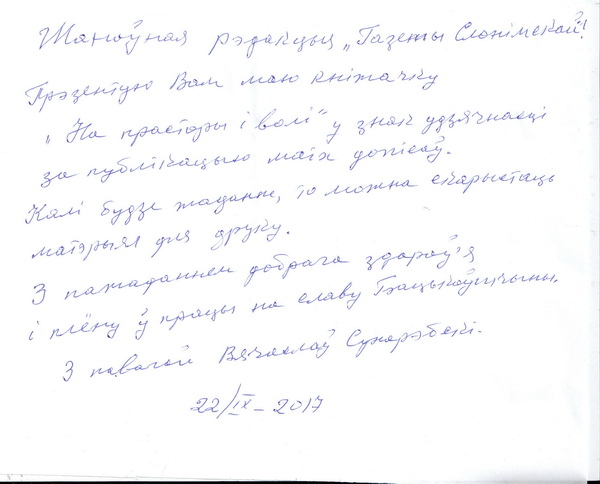 Шаноўная рэдакцыя „Газеты Слонімскай"!
Прэзентую Вам маю кніжачку
„На прасторы і волі" у знак удзячнасці
за публікацыю маіх допісаў.
Калі будзе жаданне, то можна скарыстаць
матэрыял для друку.
З пажаданнем добрага здароўя
і плёну ў працы на славу Бацькаўшчыны.
З павагай Вячаслаў Сухарэбскі.
22/IX – 2017